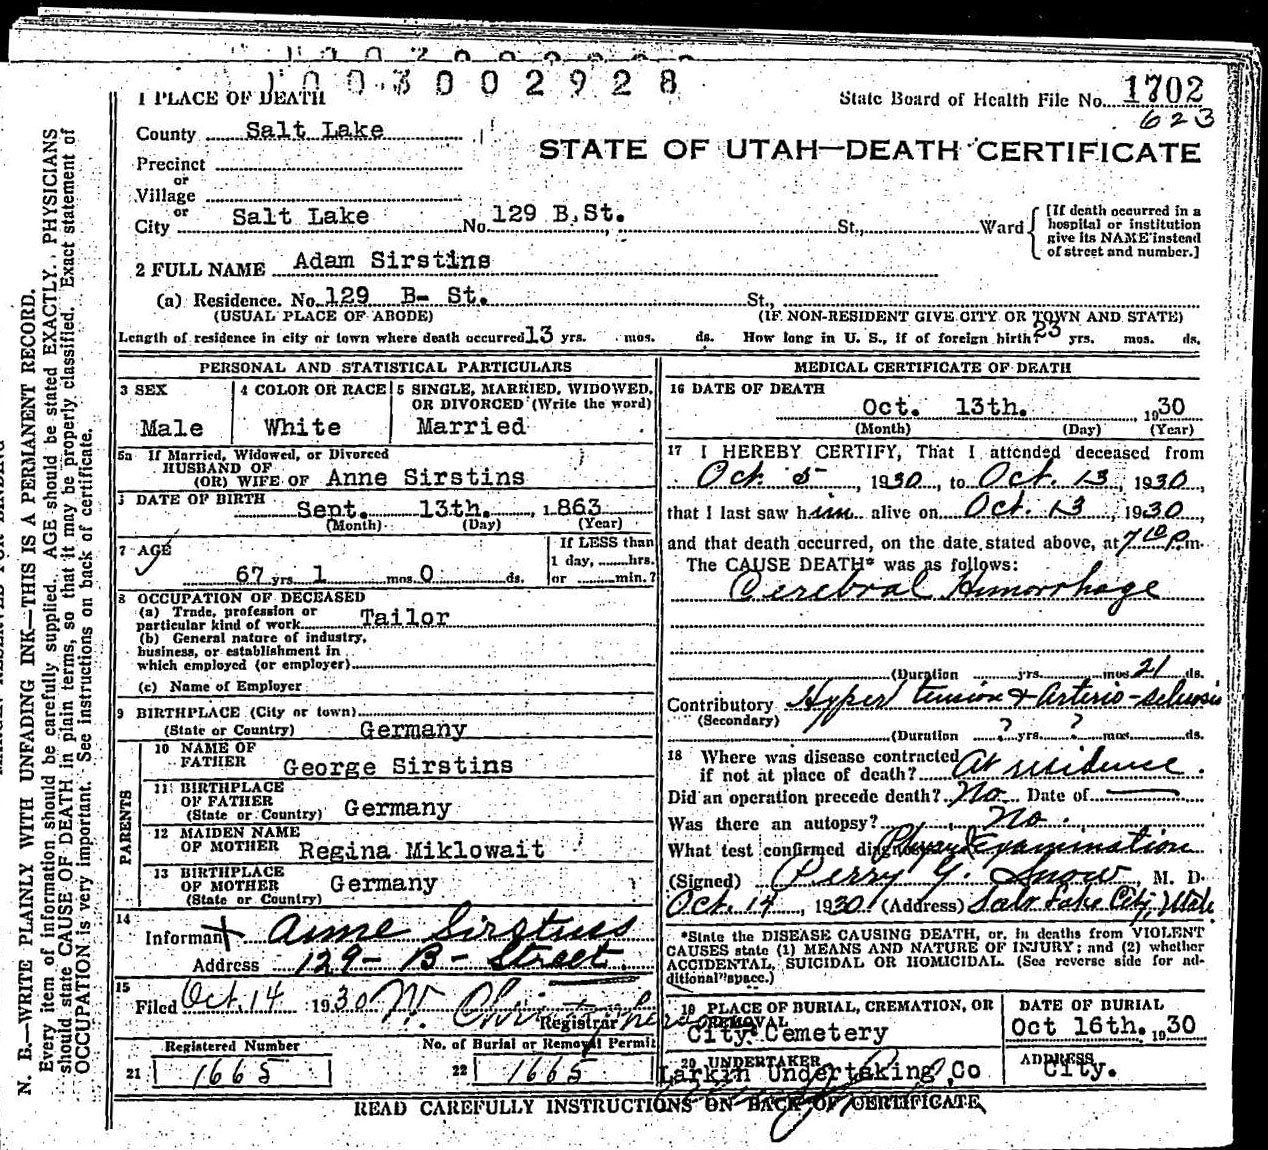 1003002928
1 PLACE OF DEATH
State Board of Health File No. 1702
623
County Salt Lake
STATE OF UTAH—DEATH CERTIFICATE
Precinct
or
Village
or
City Salt Lake No. 129 B.St. St., Ward
[If death occurred in a
hospital or institution
give its NAME instead
of street and number.]
2 FULL NAME Adam Sirstins
(a) Residence. No. 129 B- St. St.,
(USUAL PLACE OF ABODE) (IF NON-RESIDENT GIVE CITY OR TOWN AND STATE)
Length of residence in city or town where death occurred 13 yrs. mos. ds. How long in U. S., if of foreign birth? 23 yrs. mos. ds.
PERSONAL AND STATISTICAL PARTICULARS
3 SEX
Male
4 COLOR OR RACE
White
5 SINGLE, MARRIED, WIDOWED,
OR DIVORCED (Write the word)
Married
5a If Married, Widowed, or Divorced
HUSBAND OF
(OR) WIFE OF Anne Sirstins
DATE OF BIRTH
Sept. 13th. , 1863
(Month) (Day) (Year)
7 AGE
67 yrs. 1 mos. 0 ds.
If LESS than
1 day, hrs.
or min.?
8 OCCUPATION OF DECEASED
(a) Trade, profession or
particular kind of work Tailor
(b) General nature of industry,
business, or establishment in
which employed (or employer)
(c) Name of Employer
9 BIRTHPLACE (City or town)
(State or Country) Germany
PARENTS
10 NAME OF
FATHER George Sirstins
11 BIRTHPLACE
OF FATHER
(State or Country) Germany
12 MAIDEN NAME
OF MOTHER Regina Miklowait
13 BIRTHPLACE
OF MOTHER Germany
(State or Country)
14
Informant Anne Sirstins
Address 129- B- Street.
15
Filed Oct. 14 1930
Registrar
Registered Number No. of Burial or Removal Permit
21 1665 22 1665
MEDICAL CERTIFICATE OF DEATH
16 DATE OF DEATH
Oct. 13th. , 1930
(Month) (Day) (Year)
17 I HEREBY CERTIFY, That I attended deceased from
Oct. 5 , 1930, to Oct. 13, 1930,
that I last saw him alive on Oct. 13 , 1930
and that death occurred, on the date stated above, at 7 10 P.m.
The CAUSE DEATH* was as follows:
Cerebral Hemorrhage
(Duration yrs. mos 21 ds.
Contributory Hypertension & Arterio-sclerosis
(Secondary)
(Duration ? yrs. ? mos. ds.
18 Where was disease contracted
if not at place of death? At residence.
Did an operation precede death? No Date of —
Was there an autopsy? No.
What test confirmed diagnosis Physical Examination
(Signed) Perry G. Snow, M. D.
Oct. 14, 1930 (Address) Salt Lake City, Utah
*State the DISEASE CAUSING DEATH, or, in deaths from VIOLENT
CAUSES state (1) MEANS AND NATURE OF INJURY; and (2) whether
ACCIDENTAL, SUICIDAL OR HOMICIDAL. (See reverse side for ad-
ditional space.)
19 PLACE OF BURIAL, CREMATION, OR
REMOVAL
City Cemetery
DATE OF BURIAL
Oct 16th. 1930
20 UNDERTAKER
Larkin Undertaking Co
ADDRESS
City.
READ CAREFULLY INSTRUCTIONS ON BACK OF CERTIFICATE
N. B.—WRITE PLAINLY WITH UNFADING INK—THIS IS A PERMANENT RECORD.
Every item of information should be carefully supplied. AGE should be stated EXACTLY. PHYSICIANS
should state CAUSE OF DEATH in plain terms, so that it may be properly classified. Exact statement of
OCCUPATION is very important. See instructions on back of certificate.